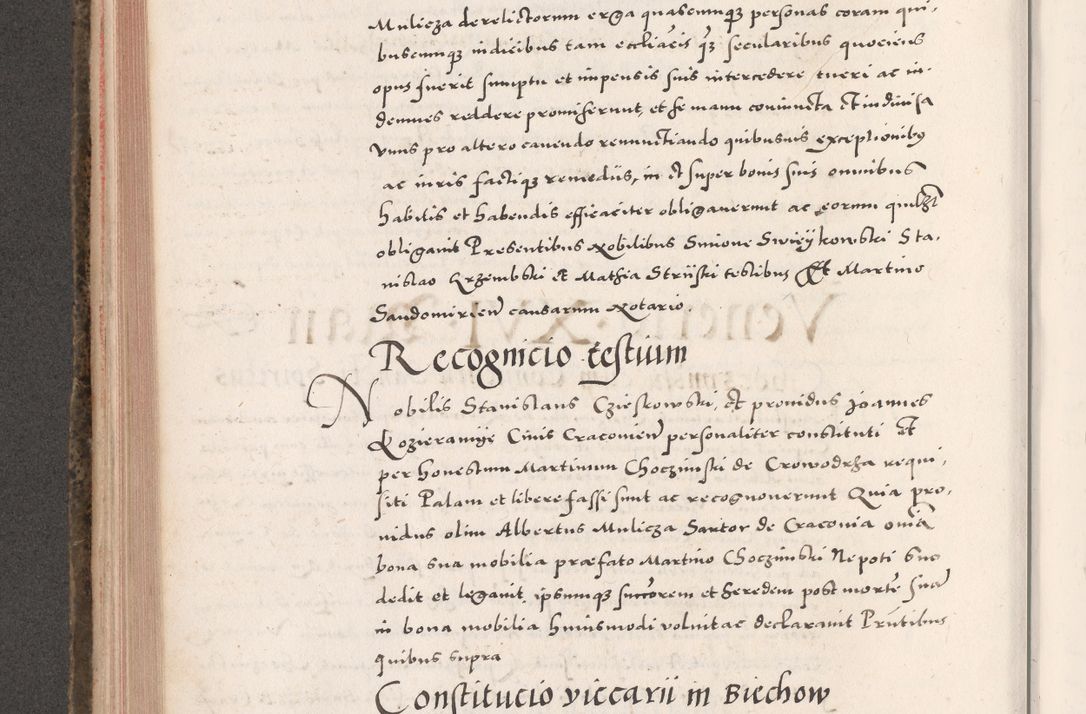 Mulicza derelictorum erga quascumq3 personas coram qui,
buscumq3 iudicibus tam eccliacis q3 secularibus quociens
opus fuerit sumptu et impensis suis intercedere tueri ac in,
demnes reddere promiserunt, et se manu coniuncta Et indiuisa
vnus pro altero cauendo renunctiando quibusuis exceptionibus
ac iuris factiq3 remediis, in et super bonis suis omnibus
habitis et habendis efficaciter obligauerunt ac eorum quilzt
obligauit Presentibus Nobilibus Simone Swieykowski Sta,
nislao Krzembski et Mathia Strijski testibus Et Martino
Sandomirien causarum Notario
Recognicio testium
Nobilis Stanislaus Czieskowski, et prouidus Joannes
Kozieramije Ciuis Cracouien personaliter constituti et
per honestum Martinum Choczimski de Crowodrza requi,
siti Palam et libere fassi sunt ac recognouerunt Quia pro,
uidus olim Albertus Mulicza Sartor de Cracouia omia
bona sua mobilia præfato Martino Choczimski Nepoti suo
dedit et legauit, ipsumq3 succorem et heredem post morte sua
in bona mobilia huiusmodi voluit ac declarauit Prntibus
quibus supra
Constitucio viccarii in Biechow